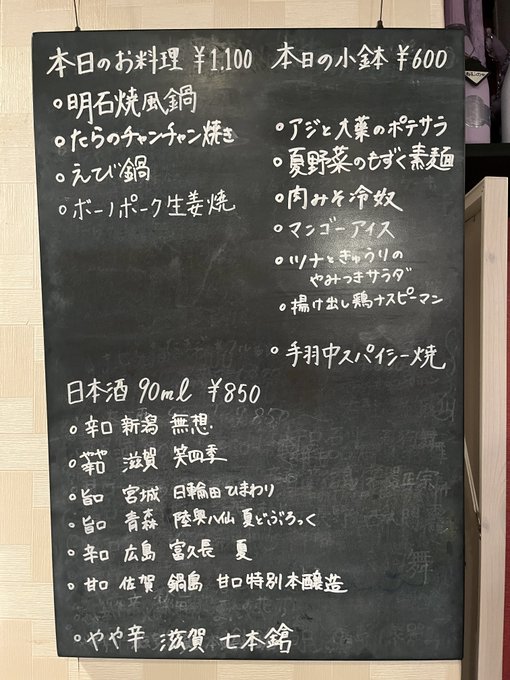 本日のお料理 ¥1,100
。明石焼風鍋
。たらのチャンチャン焼き
。えび鍋
。ボーノポーク生姜焼
本日の小鉢 ¥600
。アジと大葉のポテサラ
。夏野菜のもずく素麺
。肉みそ冷奴
。マンゴーアイス
。ツナときゅうりの
やみつきサラダ
。揚げ出し鶏ナスピーマン
。手羽中スパイシー焼
日本酒 90ml ¥850
。辛口 新潟 無想
。滋賀 笑四季
。旨口 宮城 日輪田 ひまわり
。旨口 青森 陸奥八仙 夏どぶろっく
。辛口 広島 富久長 夏
。甘口 佐賀 鍋島 甘口特別本醸造
。やや辛 滋賀 七本鎗